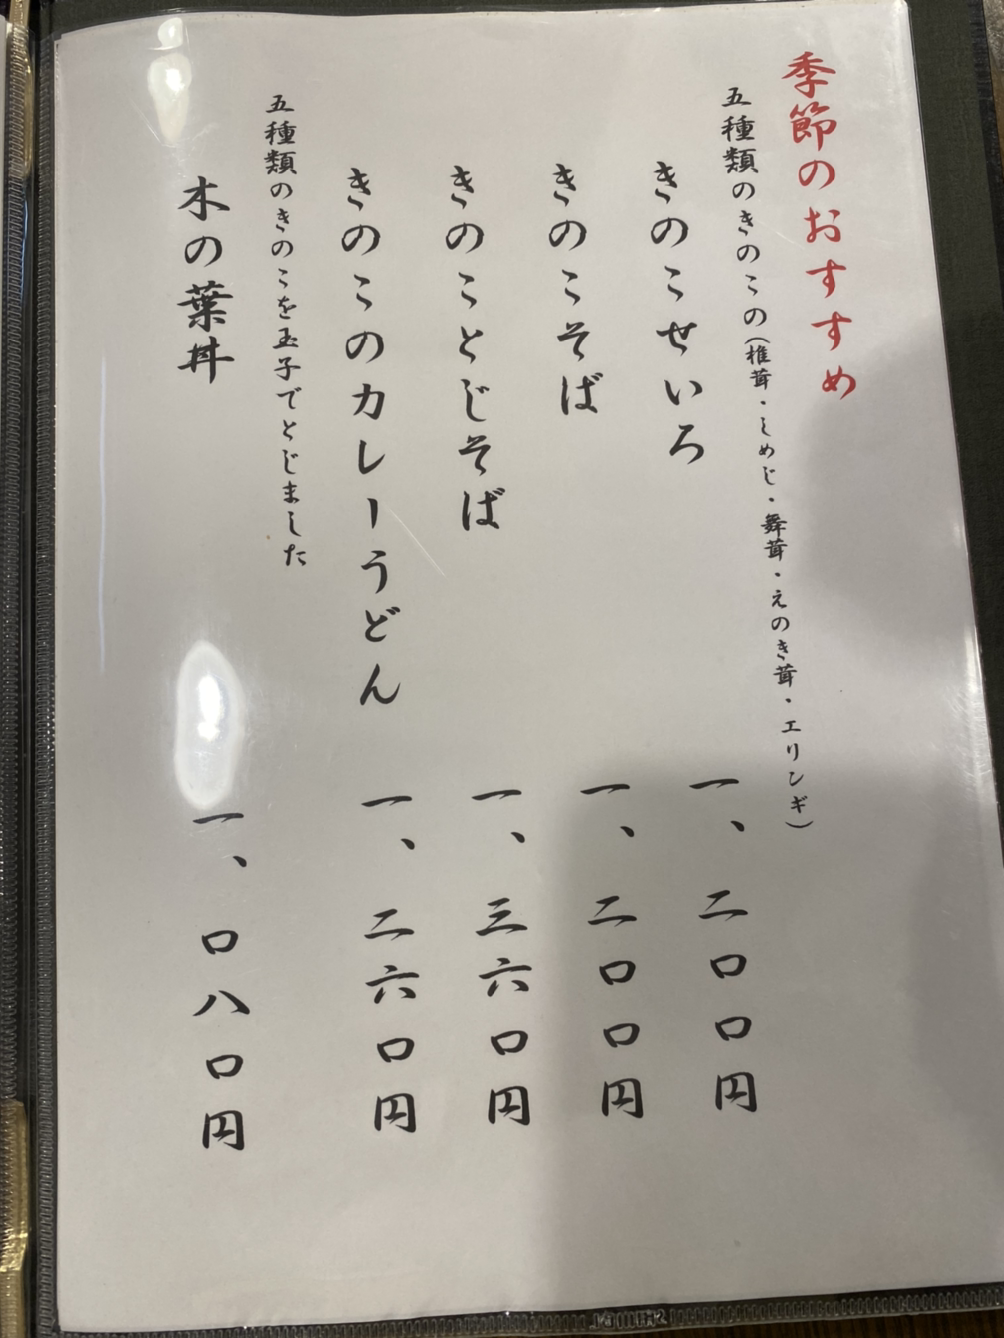 季節のおすすめ
五種類のきのこの(椎茸・しめじ・舞茸・えのき茸・エリンギ)
きのこせいろ 一、二〇〇円
きのこそば 一、二〇〇円
きのことじそば 一、三六〇円
きのこのカレーうどん 一、二六〇円
五種類のきのこを玉子でとじました
木の葉丼 一、〇八〇円